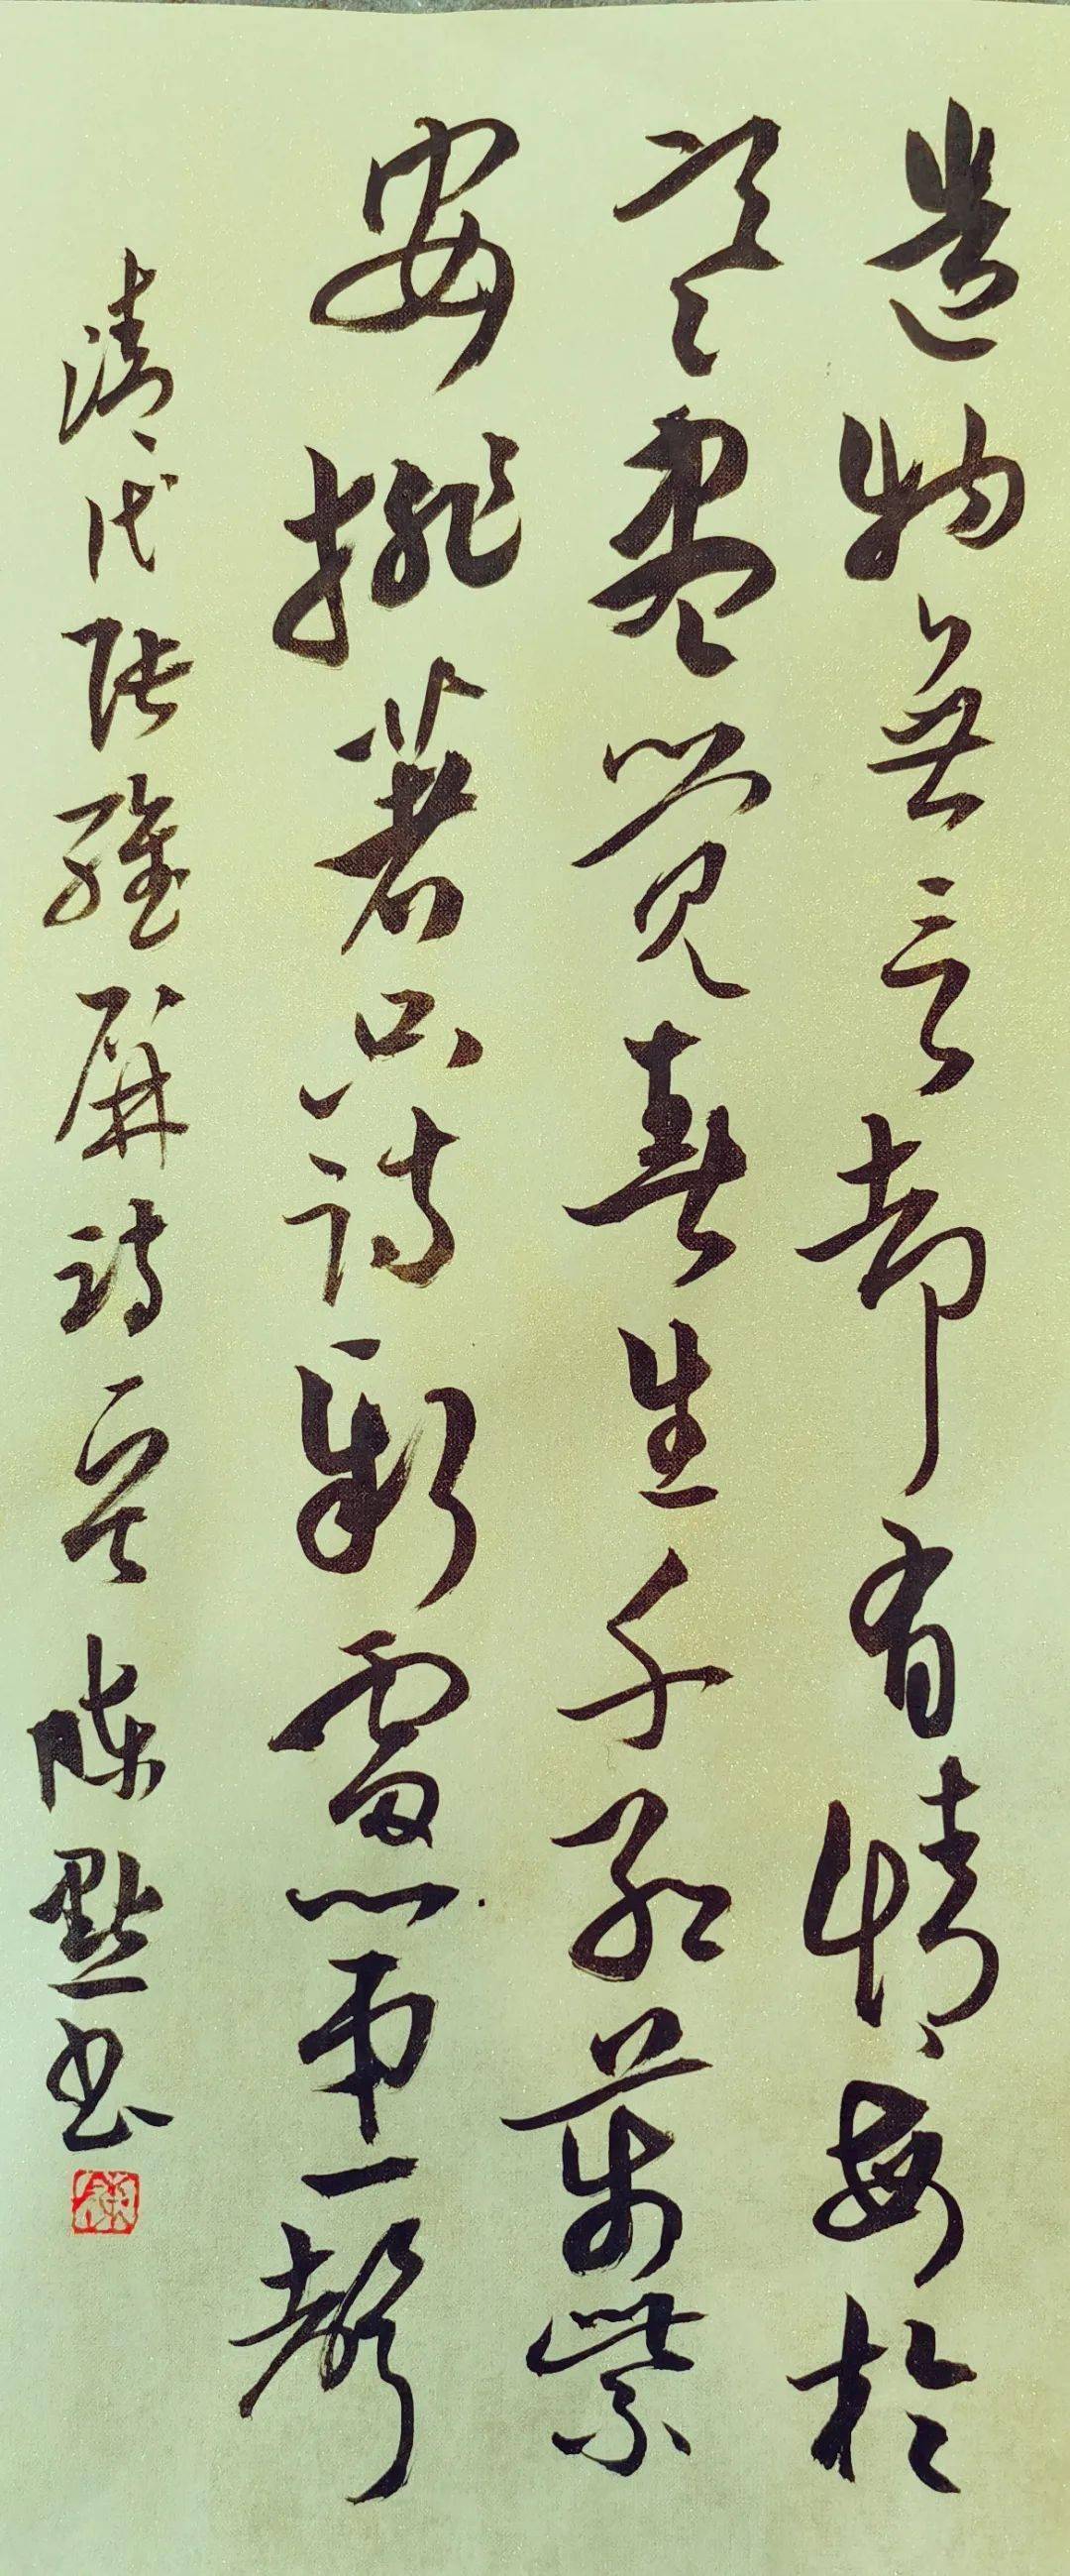 造物無言却有情每於
寒盡覺春生千紅萬紫
安排著只待新雷第一聲
清代張維屏詩一首 陳點书